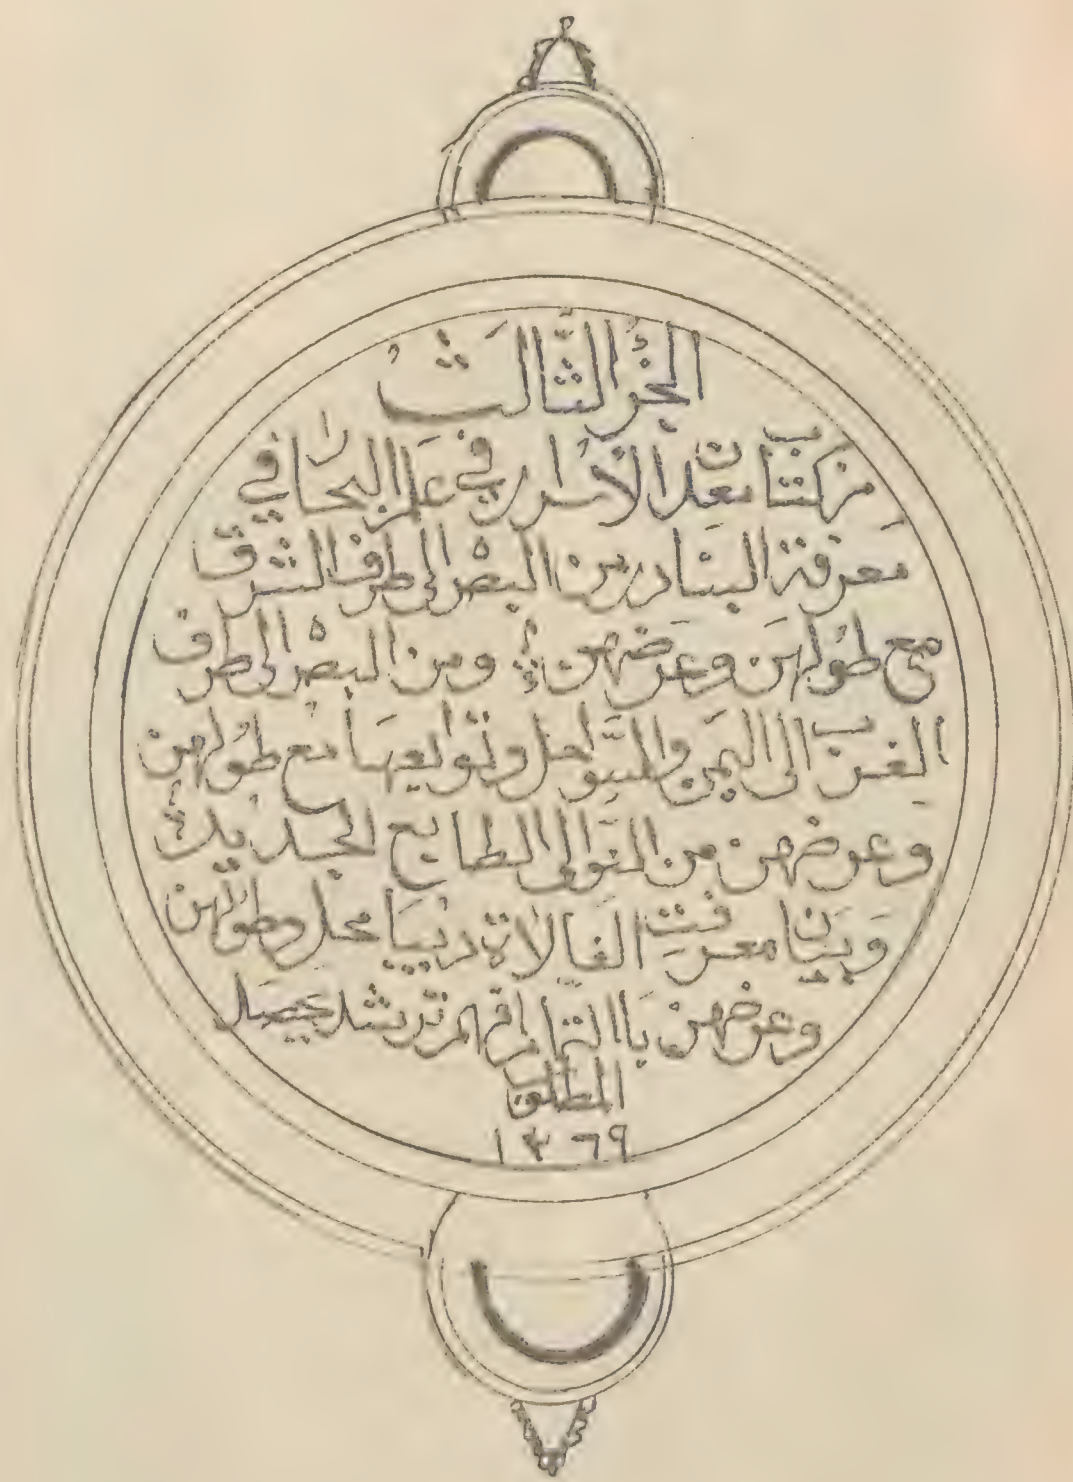 الجزُء الثَّالَثْ
من كتاب معدن الاسرار في علم البحار في
معرفة البنادر من البصره الى طرف الشرق
مع طُولهن وعرضهن ومن البصره الى طرف
الغرب الى اليمن والسَّواحل وتوابعها مع طولهن
وعرضهن من النوالى الطابع الجديد
وبيان معرفت القالاة دنيبا محل وطولهن
وعرضهن باالتّمام افهم ترشد يحصل
المطلوب
١٣٦٩